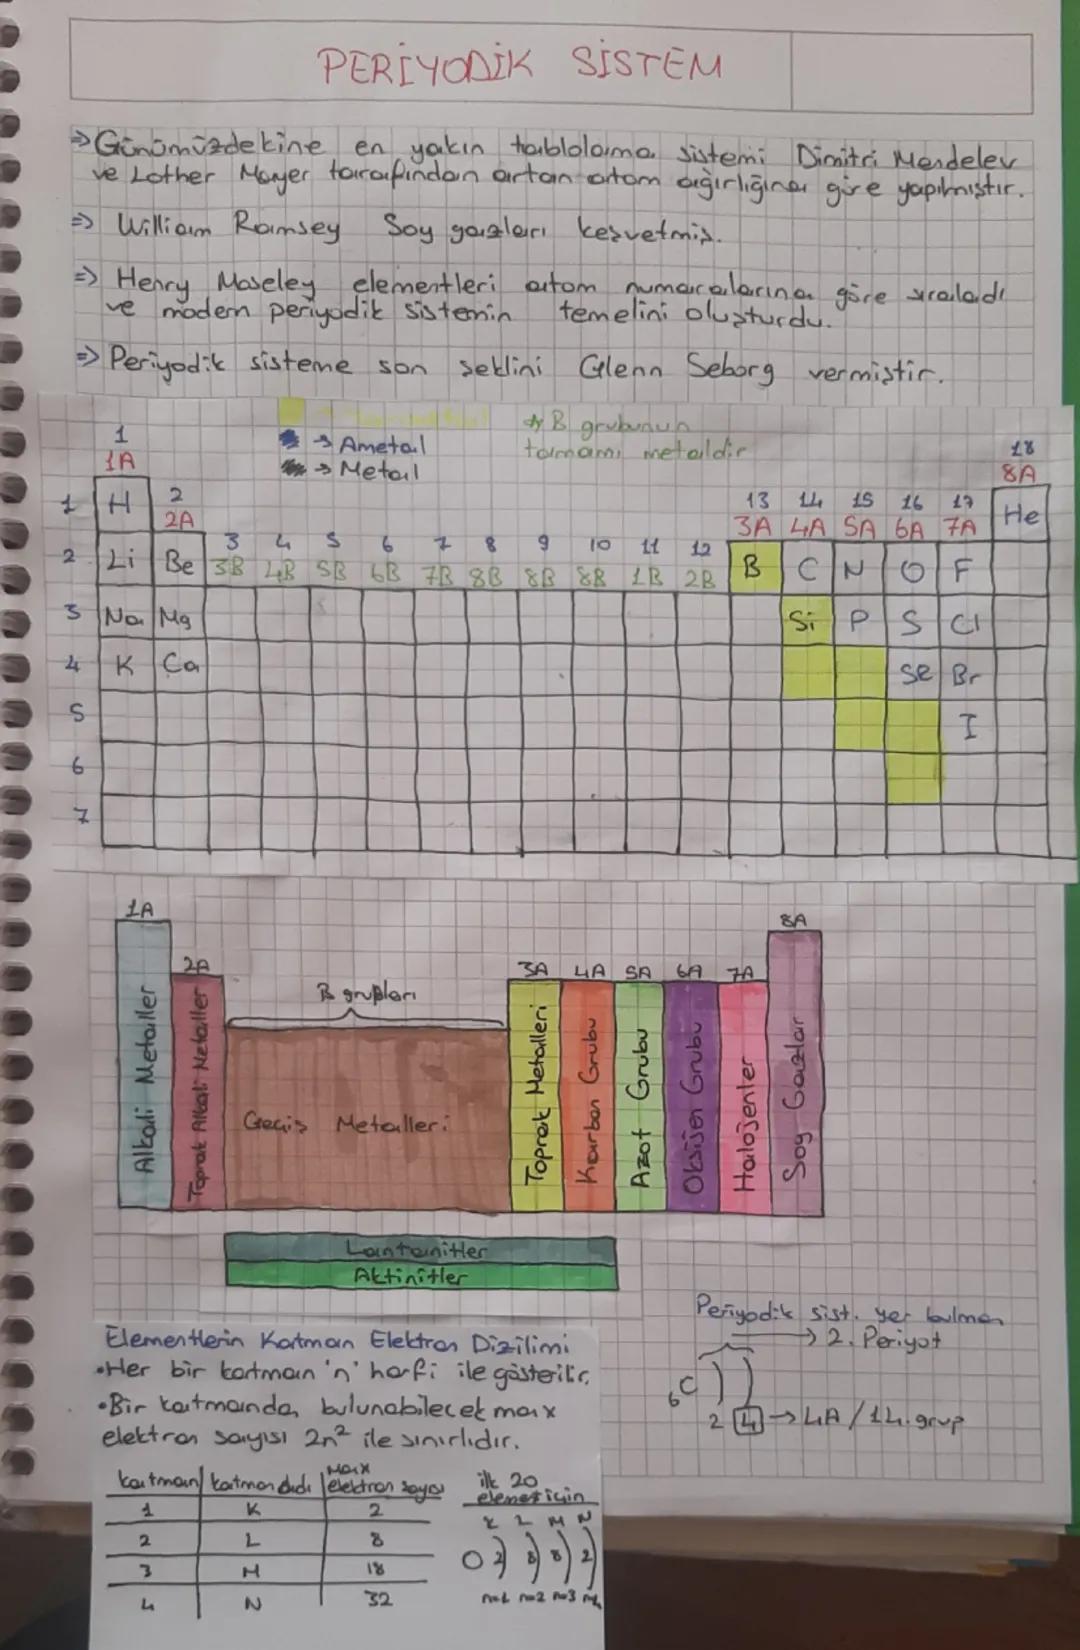 PERİYODİK SİSTEM
=> Günümüzdekine en yakın tablolama sistemi Dimitri Mendelev
ve Lother Mayer tarafından artan atom ağırlığına göre yapılmıştır.
=> William Ramsey Soy gazları keşvetmiş.
=> Henry Moseley elementleri atom numaralarına göre sıraladı
ve modern periyodik sistemin temelini oluşturdu.
=> Periyodik sisteme son şeklini Glenn Seborg vermiştir.
→ Ametal
→ Metal
B grubunun
tamamı metaldir
1 18
1A 8A
1 H 2 13 14 15 16 17 He
2A 3A 4A 5A 6A 7A
3 4 5 6 7 8 9 10 11 12
2 Li Be 3B 4B 5B 6B 7B 8B 8B 8B 1B 2B B C N O F
3 Na Mg Si P S Cl
4 K Ca Se Br
5 I
6
7
1A 8A
2A 3A 4A 5A 6A 7A
B grupları
Alkali Metaller
Toprak Alkali Metaller
Geçiş Metalleri
Toprak Metalleri
Karbon Grubu
Azot Grubu
Oksijen Grubu
Halojenler
Soy Gazlar
Lantanitler
Aktinitler
Periyodik sist. yer bulma
→ 2. Periyot
6C ) )
2 4 → 4A / 14. grup
Elementlerin Katman Elektron Dizilimi
•Her bir katman 'n' harfi ile gösterilir.
•Bir katmanda bulunabilecek max
elektron sayısı 2n² ile sınırlıdır.
katman katman adı Max elektron sayısı
1 K 2
2 L 8
3 M 18
4 N 32
ilk 20
element için
K L M N
O 2) 8) 8) 2)
n=1 n=2 n=3 n=4